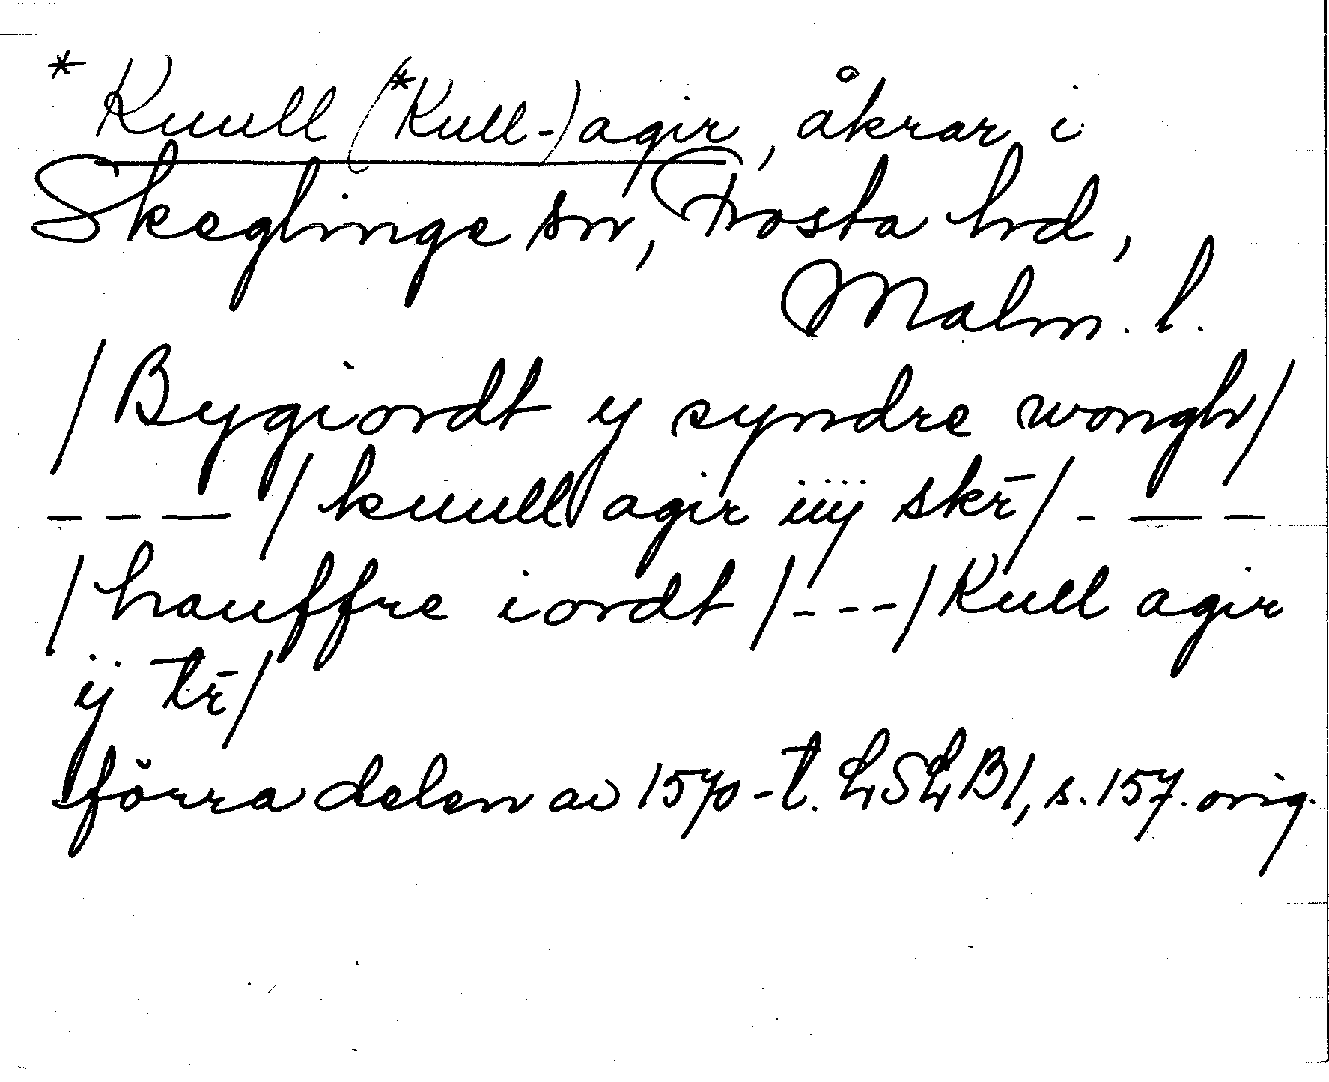 * Kuull (*Kull-) agir, åkrar i
Skeglinge sn, Frosta hd,
Malm. l.
/ Bygiordt y syndre wongh /
— — — / kuull agir iiij skr̄ / - — -
/ hauffre iordt / - - - / Kull agir
ij tr̄ /
förra delen av 1570-t. LSLB1, s. 157. orig.